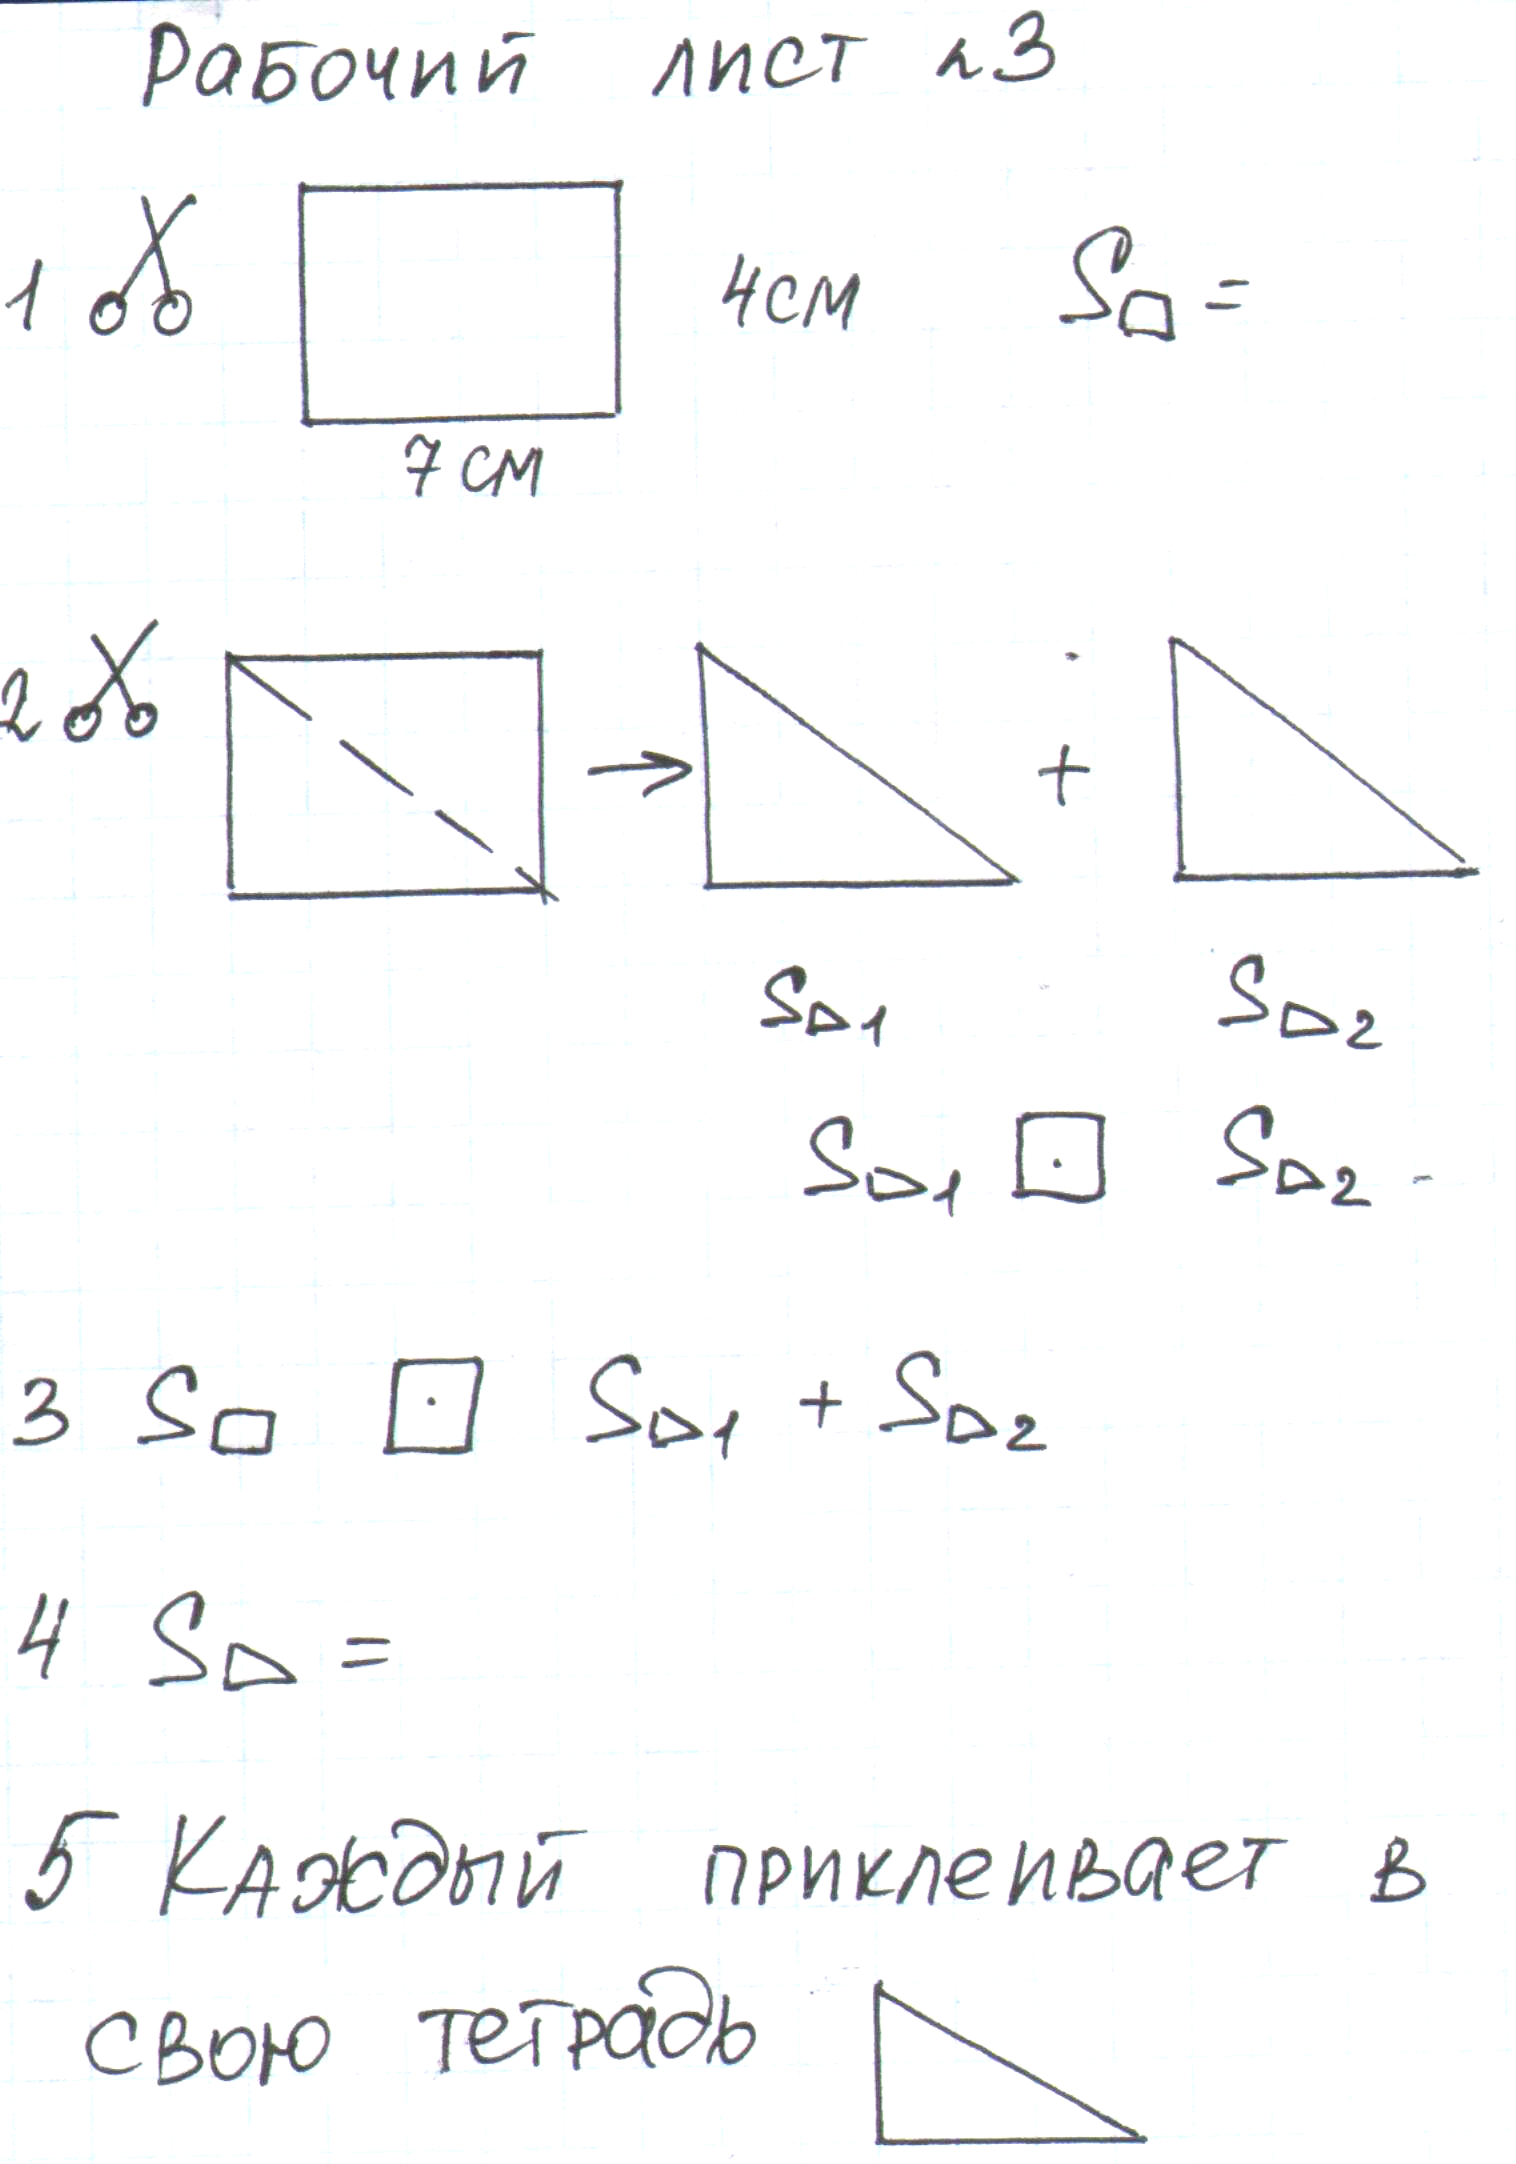 Рабочий лист №3
1 4см S□ =
7 см
2 → +
S△1 S△2
S△1 □ S△2
3 S□ □ S△1 + S△2
4 S△ =
5 Каждый приклеивает в
свою тетрадь